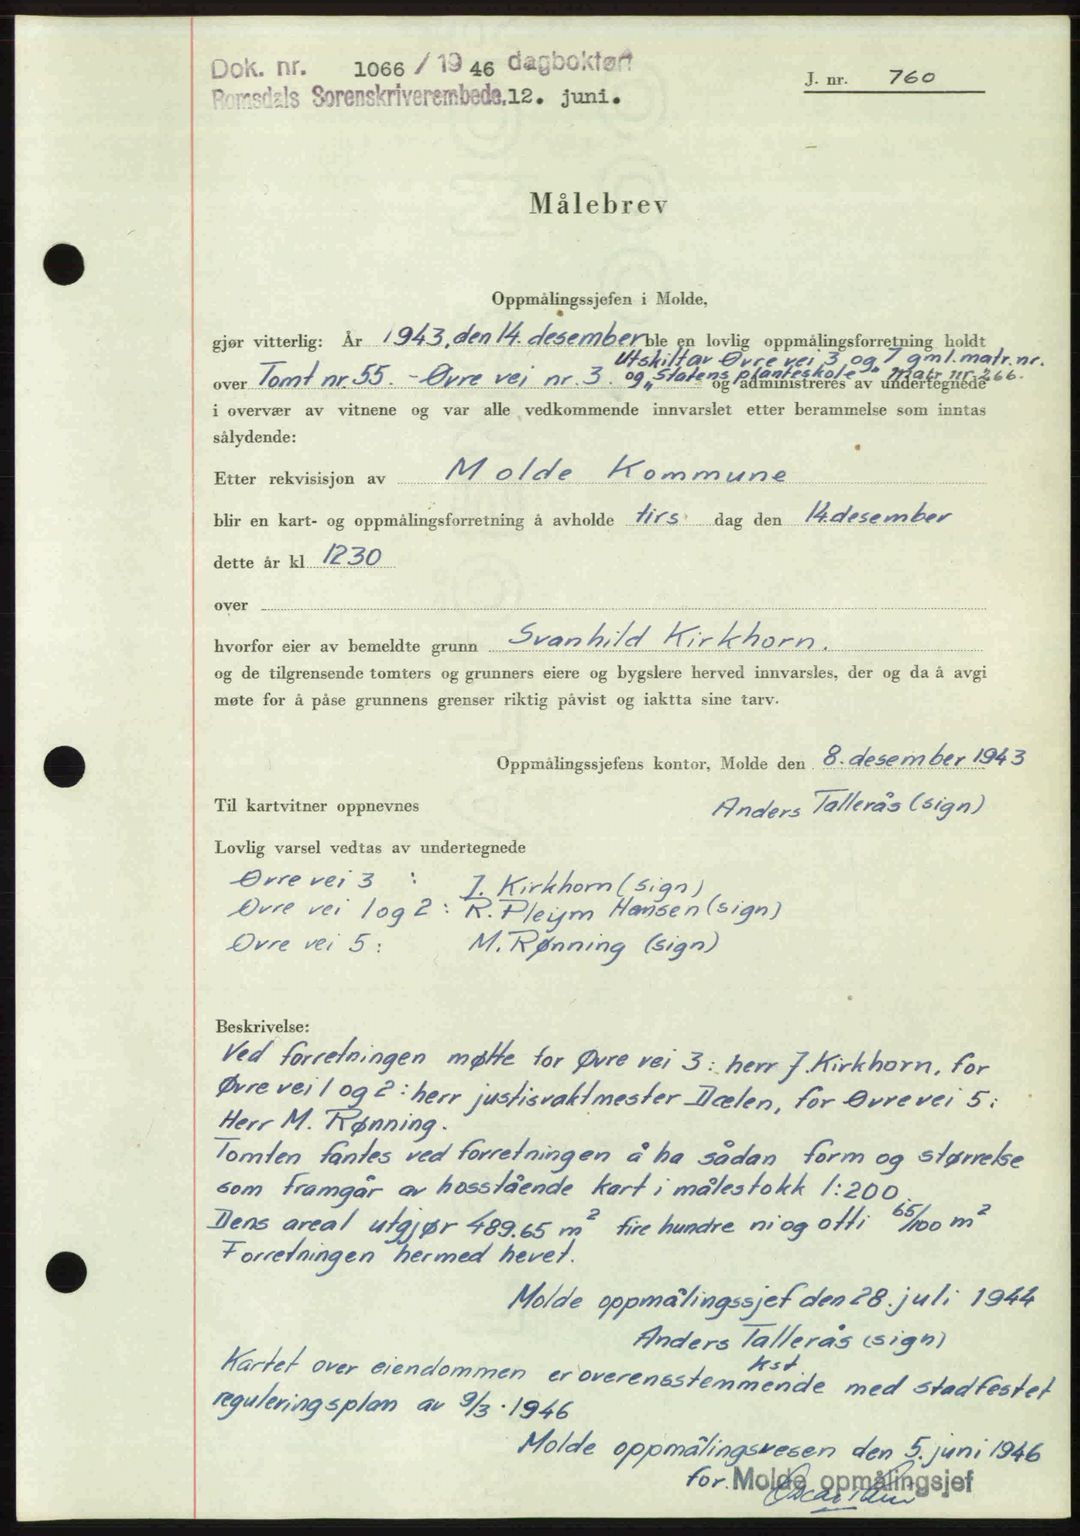 Dok. nr. 1066 / 19 46 dagbokført
Romsdals Sorenskriverembede, 12. juni.
J. nr. 760
Målebrev
Oppmålingssjefen i Molde,
gjør vitterlig: År 1943, den 14. desember ble en lovlig oppmålingsforretning holdt
Utskilt av Øvre vei 3 og 7 gml. matr. nr.
over Tomt nr 55. - Øvre vei nr. 3. og "Statens planteskole" Matr nr 266.
og administreres av undertegnede
i overvær av vitnene og var alle vedkommende innvarslet etter berammelse som inntas
sålydende:
Etter rekvisisjon av Molde Kommune
blir en kart- og oppmålingsforretning å avholde tirs dag den 14. desember
dette år kl 1230
over
hvorfor eier av bemeldte grunn Svanhild Kirkhorn.
og de tilgrensende tomters og grunners eiere og bygslere herved innvarsles, der og da å avgi
møte for å påse grunnens grenser riktig påvist og iaktta sine tarv.
Oppmålingssjefens kontor, Molde den 8. desember 1943
Til kartvitner oppnevnes
Anders Tallerås (sign)
Lovlig varsel vedtas av undertegnede
Øvre vei 3 : J. Kirkhorn (sign)
Øvre vei 1 og 2 : R. Pleym Hansen (sign)
Øvre vei 5 : M. Rønning (sign)
Beskrivelse:
Ved forretningen møtte for Øvre vei 3: herr J. Kirkhorn, for
Øvre vei 1 og 2 : herr justisvaktmester Dælen, for Øvre vei 5:
Herr M. Rønning.
Tomten fantes ved forretningen å ha sådan form og størrelse
som framgår av hosstående kart i målestokk 1:200.
Dens areal utgjør 489.65 m² fire hundre ni og otti 65/100 m²
Forretningen hermed hevet.
Molde oppmålingssjef den 28. juli 1944
Anders Tallerås (sign)
Kartet over eiendommen er overensstemmende med stadfestet
reguleringsplan av 9/3. 1946
Molde oppmålingsvesen den 5. juni 1946
for. Molde opmålingsjef